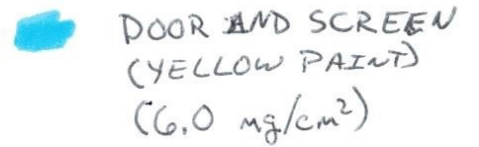 DOOR AND SCREEN
(YELLOW PAINT)
(6.0 mg/cm²)